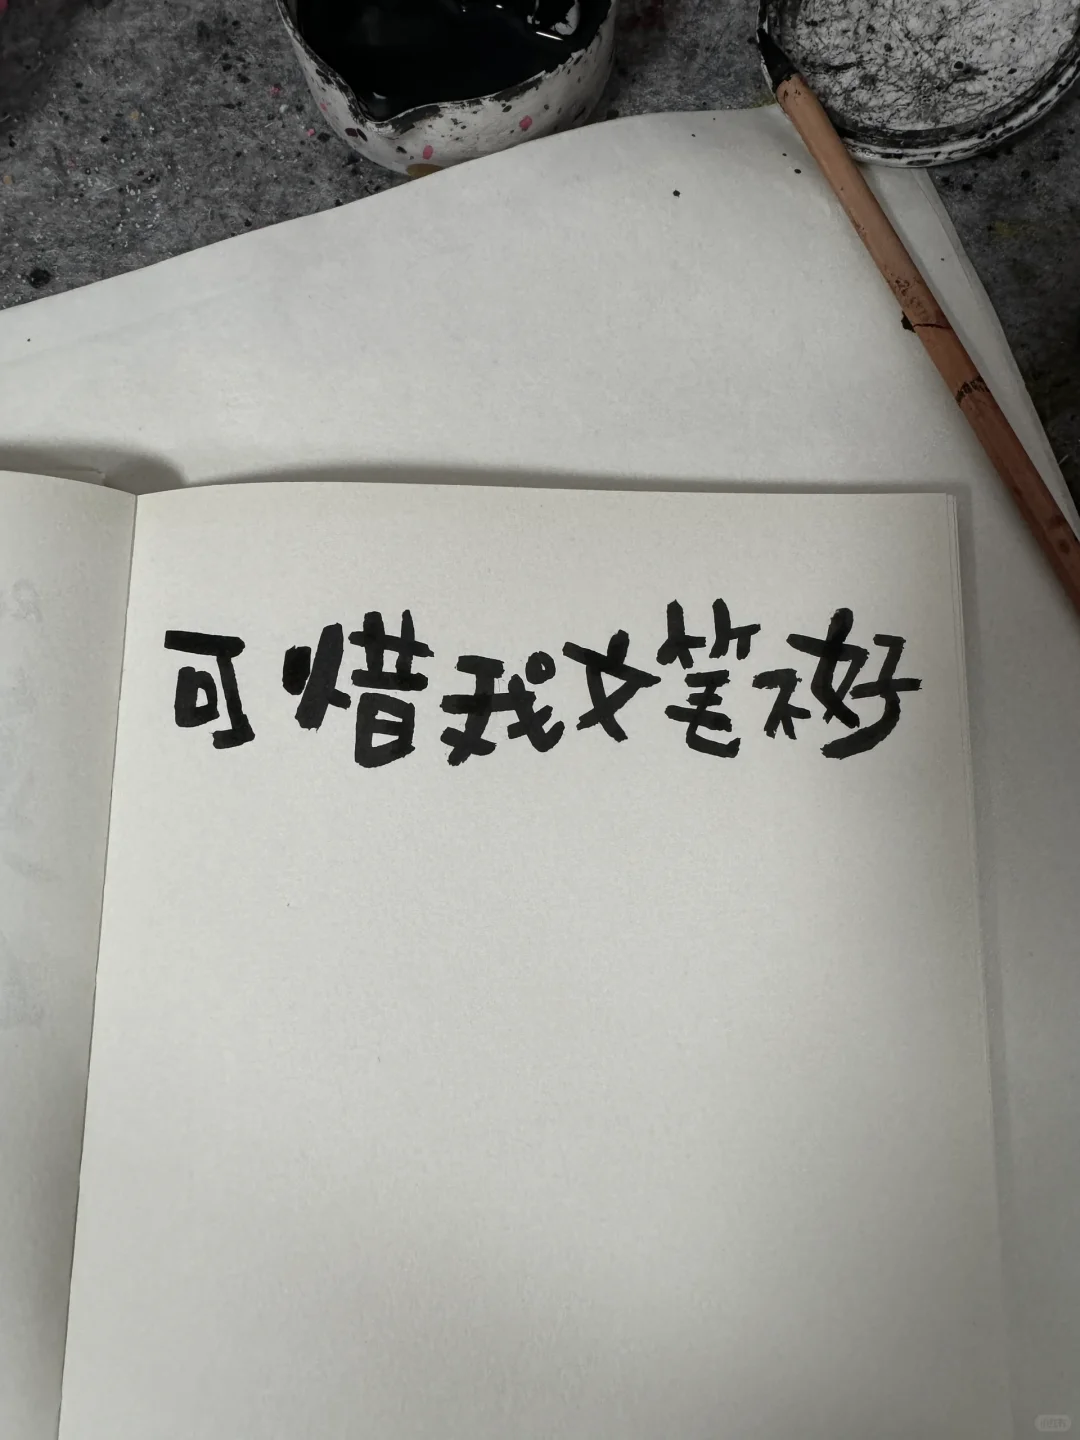 可惜我文笔不好